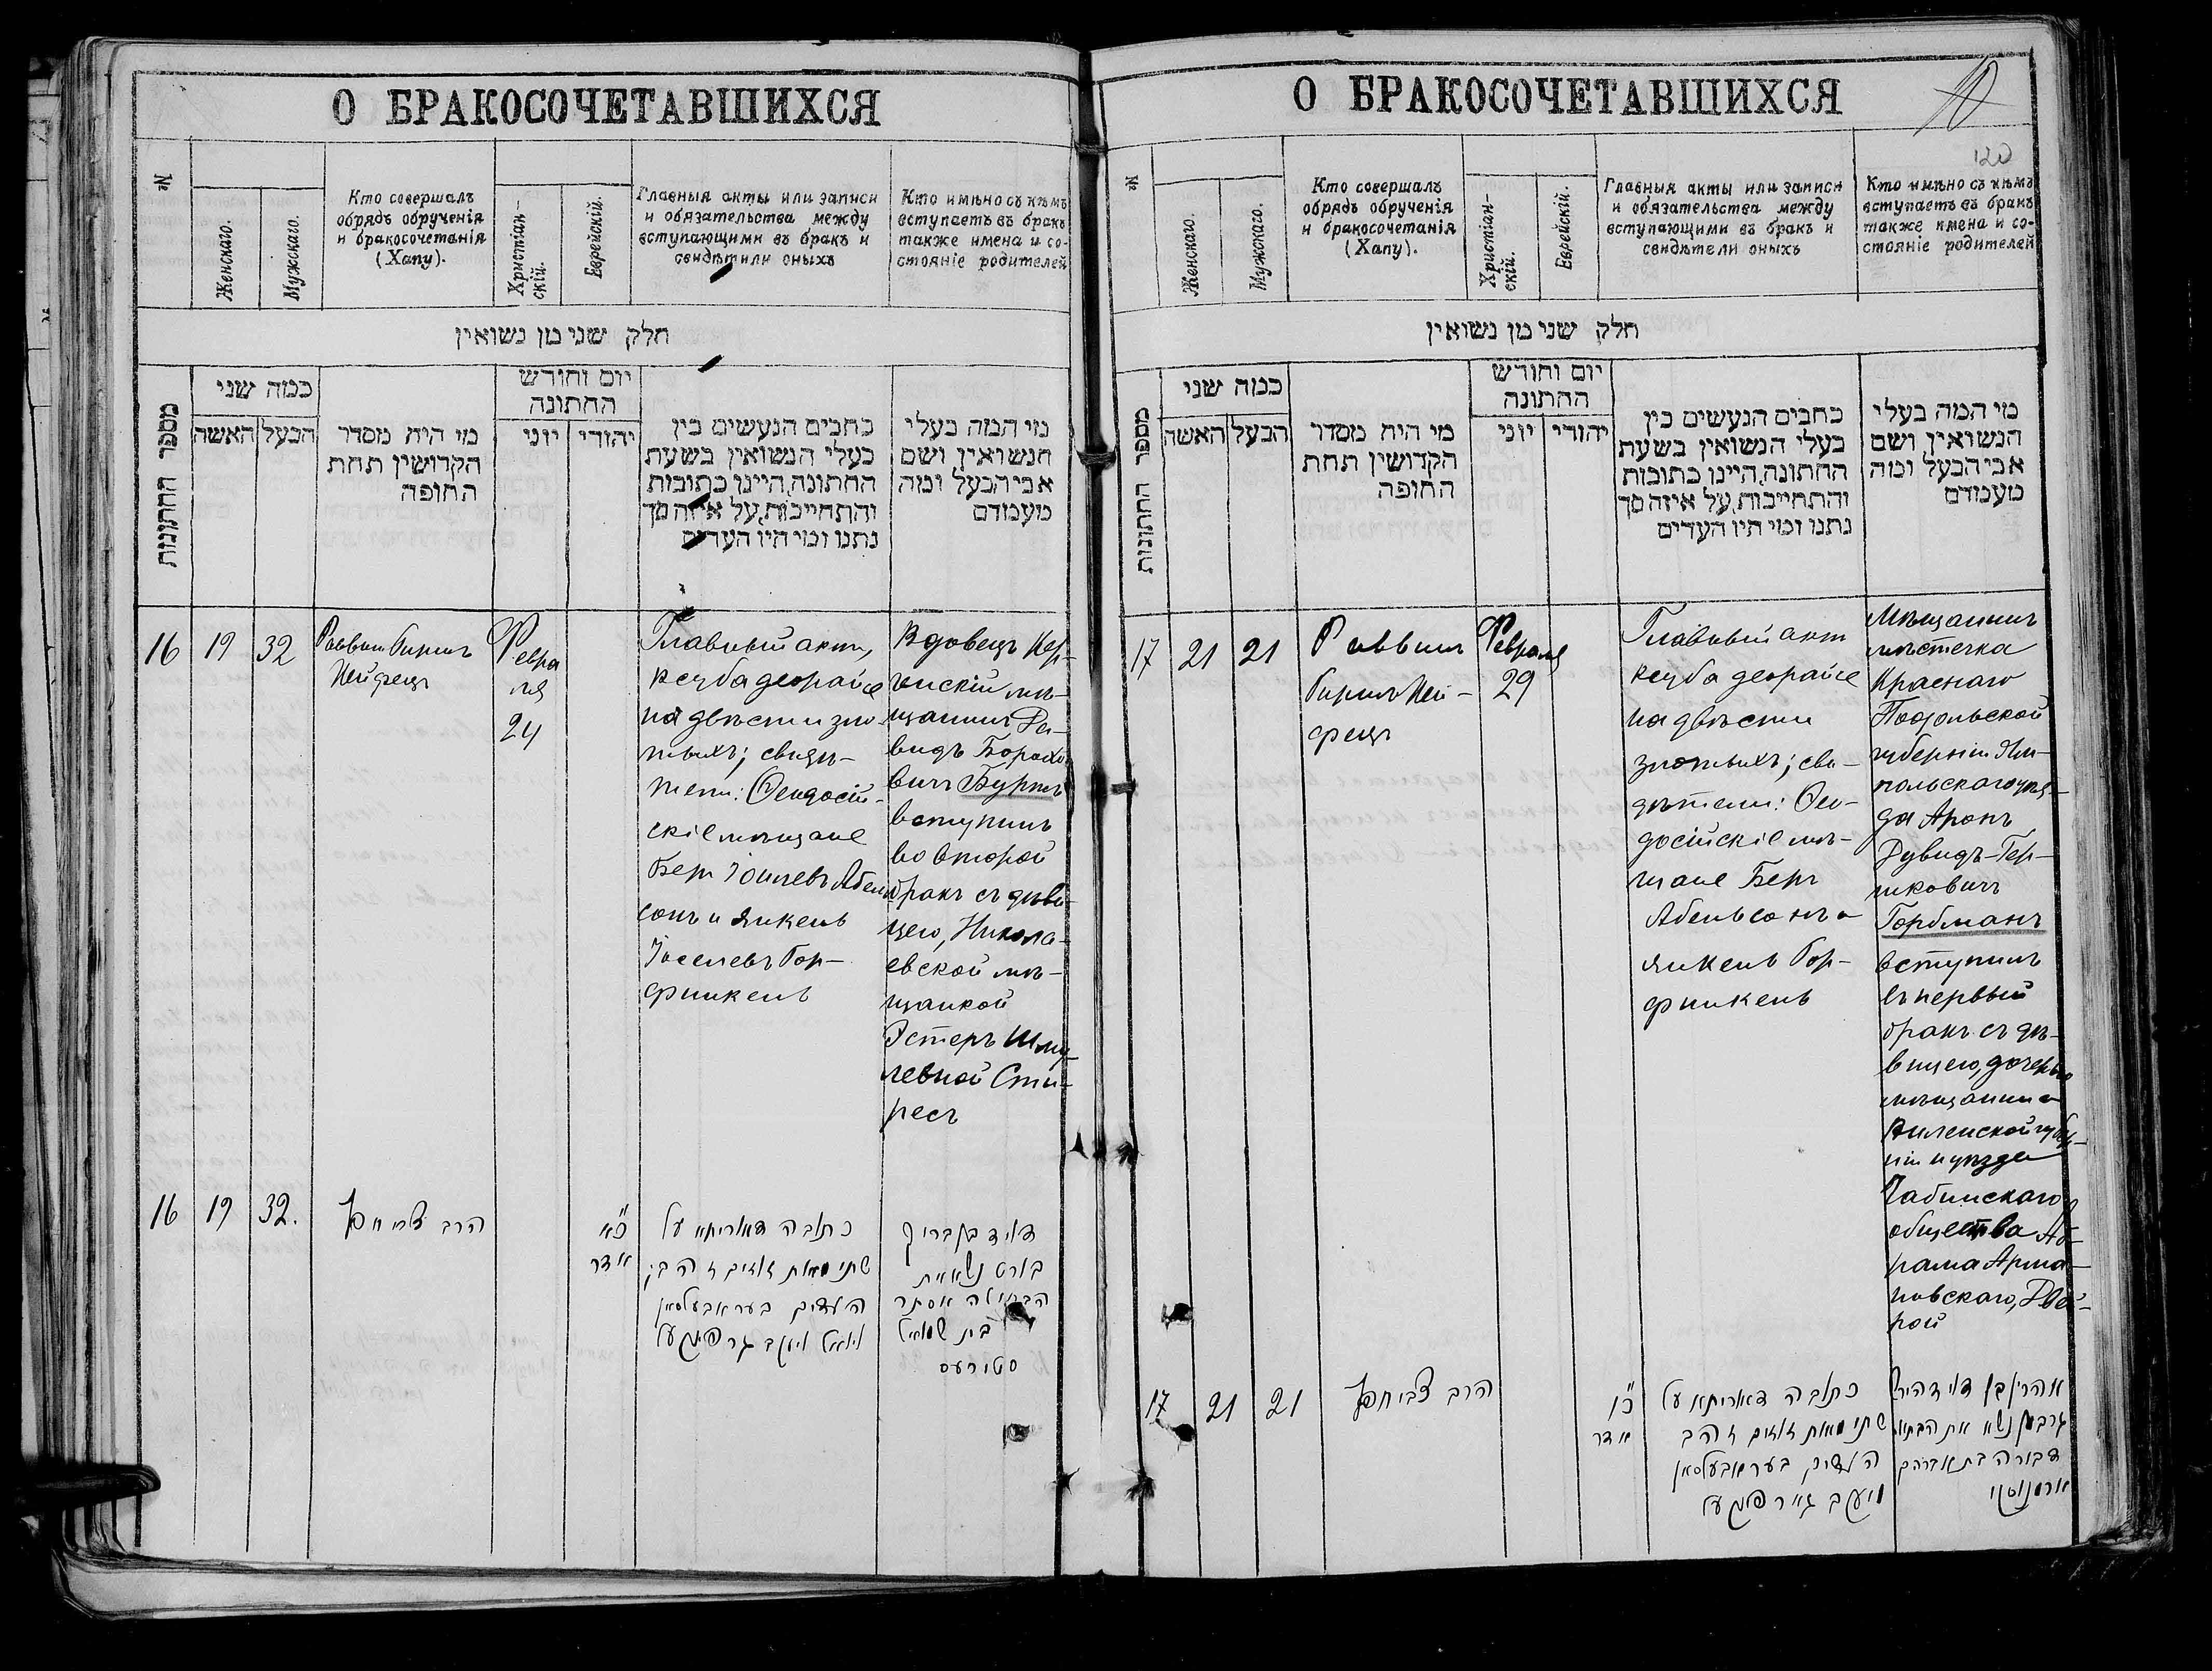 О БРАКОСОЧЕТАВШИХСЯ
№
Женскаго.
Мужскаго.
Кто совершалъ
обрядъ обрученія
и бракосочетанія
(Хапу).
Христіан-
скій.
Еврейскій.
Главныя акты или записи
и обязательства между
вступающими въ бракъ и
свидѣтили оныхъ
Кто имѣно съ кѣмъ
вступаетъ въ бракъ
также имена и со-
стояніе родителей
חלק שני מן נשואין
מספר החתונות
כמה שני
האשה
הבעל
מי היה מסדר
הקדושין תחת
החופה
יום וחודש
החתונה
יוני
יהודי
כתבים הנעשים בין
בעלי הנשואין בשעת
החתונה היינו כתובות
והתחייבות על איזה סך
נתנו ומי היו העדים
מי המה בעלי
הנשואין ושם
אבי הבעל ומה
מעמדם
16
19
32
Раввинъ
Февра
ля
24
Главный актъ,
кеуба деорайсе
на двѣсти зло-
тыхъ; свидѣ-
тели: Ѳеодосій-
скіе мѣщане
Беръ Абель
сонъ и Янкель
Іоселевъ Гор-
финкель
Вдовецъ Кер-
ченскій мѣ-
щанинъ Да-
видъ Борохо
вичъ Буртъ
вступилъ
во второй
бракъ съ дѣви-
цею, Никола-
евской мѣ-
щанкой
Эстеръ Шму-
левной Сти-
ресъ
16
19
32.
הרב צבי
כ"א
אדר
כתובה דאוריתא על
שתי מאות זוזים זהב
העדים בער אבעלסאן
יעקב גרפינקעל
דוד בן ברוך
בורט נשא את
הבתולה אסתר
בת שמואל
סטירעס
О БРАКОСОЧЕТАВШИХСЯ
10
120
№
Женскаго.
Мужскаго.
Кто совершалъ
обрядъ обрученія
и бракосочетанія
(Хапу).
Христіан-
скій.
Еврейскій.
Главныя акты или записи
и обязательства между
вступающими въ бракъ и
свидѣтели оныхъ
Кто имѣно съ кѣмъ
вступаетъ въ бракъ
также имена и со-
стояніе родителей
חלק שני מן נשואין
מספר החתונות
כמה שני
האשה
הבעל
מי היה מסדר
הקדושין תחת
החופה
יום וחודש
החתונה
יוני
יהודי
כתבים הנעשים בין
בעלי הנשואין בשעת
החתונה היינו כתובות
והתחייבות על איזה סך
נתנו ומי היו העדים
מי המה בעלי
הנשואין ושם
אבי הבעל ומה
מעמדם
17
21
21
Раввинъ
Февраля
29
Главный актъ
кеуба деорайсе
на двѣсти
злотыхъ; сви-
дѣтели: Ѳео-
досійскіе мѣ-
щане Беръ
Абельсонъ и
Янкель Гор-
финкель
Мѣщанинъ
мѣстечка
Краснаго
Подольской
губерніи Ям-
польскаго уѣз-
да Аронъ
Дувидъ-Гер-
шковичъ
Горбманъ
вступилъ
въ первый
бракъ съ дѣ-
вицею, дочерью
мѣщанина
Виленской губер-
ніи и уѣзда
общества Аб-
рама Арша-
новскаго, Двой-
рой
17
21
21
הרב צבי
כ"ו
אדר
כתובה דאוריתא על
שתי מאות זוזים זהב
העדים בער אבעלסאן
ויעקב גארפינקעל
אהרן בן דוד הירש
גרבמן נשא את הבתולה
דבורה בת אברהם